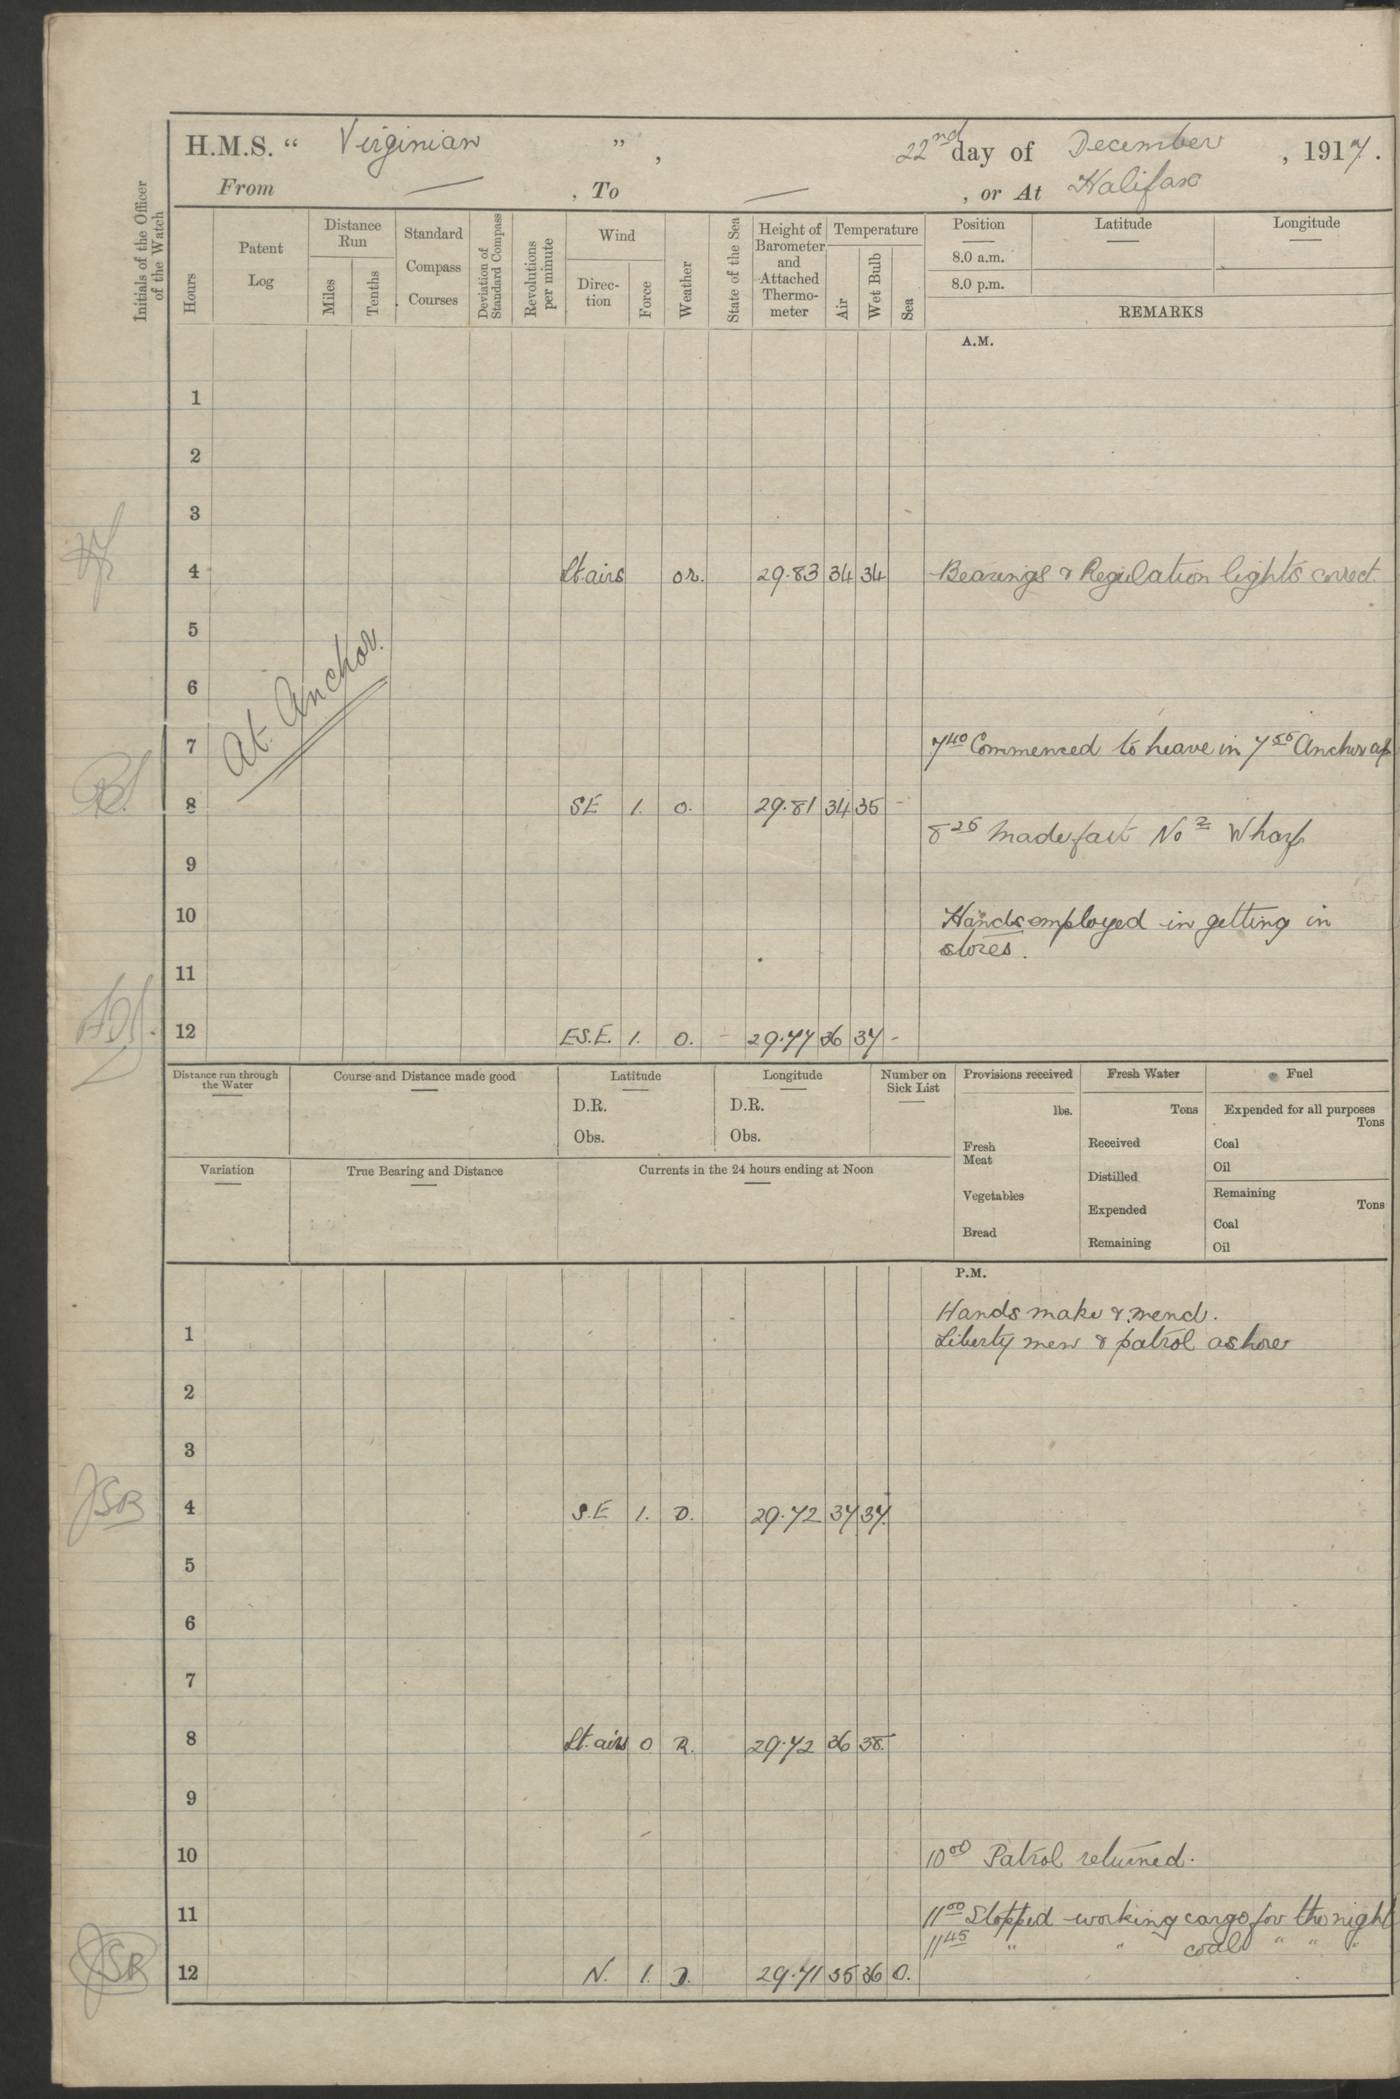 H.M.S. “ Virginian ” , 22nd day of December , 1917 .
From — , To — , or At Halifax
Initials of the Officer of the Watch
Hours
Patent Log
Distance Run
Miles
Tenths
Standard Compass Courses
Deviation of Standard Compass
Revolutions per minute
Wind
Direc-tion
Force
Weather
State of the Sea
Height of Barometer and Attached Thermo-meter
Temperature
Air
Wet Bulb
Sea
Position
Latitude
Longitude
8.0 a.m.
8.0 p.m.
REMARKS
A.M.
1
2
3
4 Lt. airs or. 29.83 34 34 Bearings & Regulation lights correct.
5
At Anchor.
6
7 7 40 Commenced to heave in 7 55 Anchor up
8 SE 1. o. 29.81 34 35 -
8 25 Made fast No 2 Wharf
9
10 Hands employed in getting in
stores.
11
12 ES.E. 1. o. - 29.77 36 37 -
Distance run through the Water
Course and Distance made good
Latitude
D.R.
Obs.
Longitude
D.R.
Obs.
Number on Sick List
Provisions received
lbs.
Fresh Meat
Vegetables
Bread
Fresh Water
Tons
Received
Distilled
Expended
Remaining
Fuel
Expended for all purposes
Tons
Coal
Oil
Remaining
Tons
Coal
Oil
Variation
True Bearing and Distance
Currents in the 24 hours ending at Noon
P.M.
Hands make & mend.
1 Liberty men & patrol ashore
2
3
JSB 4 S.E 1. o. 29.72 37 37.
5
6
7
8 Lt. airs 0 R. 29.72 36 38.
9
10 10 00 Patrol returned.
11 11 00 Stopped working cargo for the night
11 45 " " coal " " "
JSB 12 N. 1. o. 29.71 35 36 0.